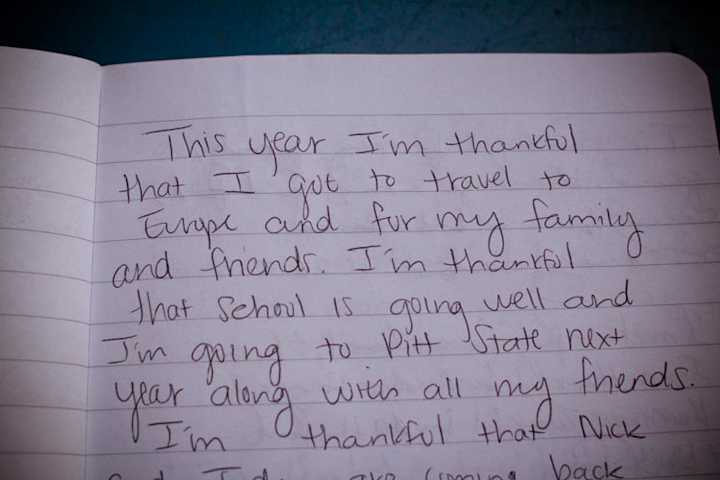 This year I'm thankful
that I got to travel to
Europe and for my family
and friends. I'm thankful
that school is going well and
I'm going to Pitt State next
year along with all my friends.
I'm thankful that Nick
and are coming back